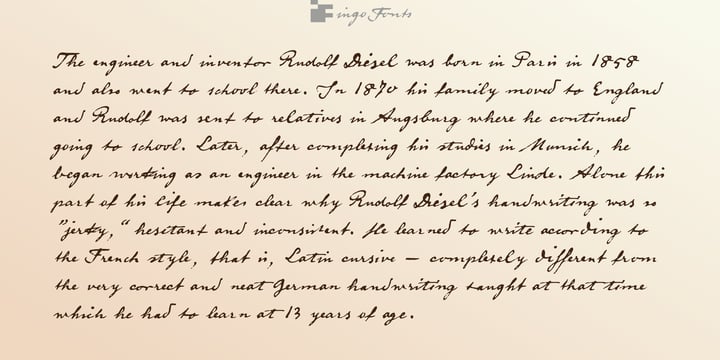 ingo Fonts
The engineer and inventor Rudolf Diesel was born in Paris in 1858
and also went to school there. In 1870 his family moved to England
and Rudolf was sent to relatives in Augsburg where he continued
going to school. Later, after completing his studies in Munich, he
began working as an engineer in the machine factory Linde. Alone this
part of his life makes clear why Rudolf Diesel's handwriting was so
"jerky," hesitant and inconsistent. He learned to write according to
the French style, that is, Latin cursive – completely different from
the very correct and neat German handwriting taught at that time
which he had to learn at 13 years of age.